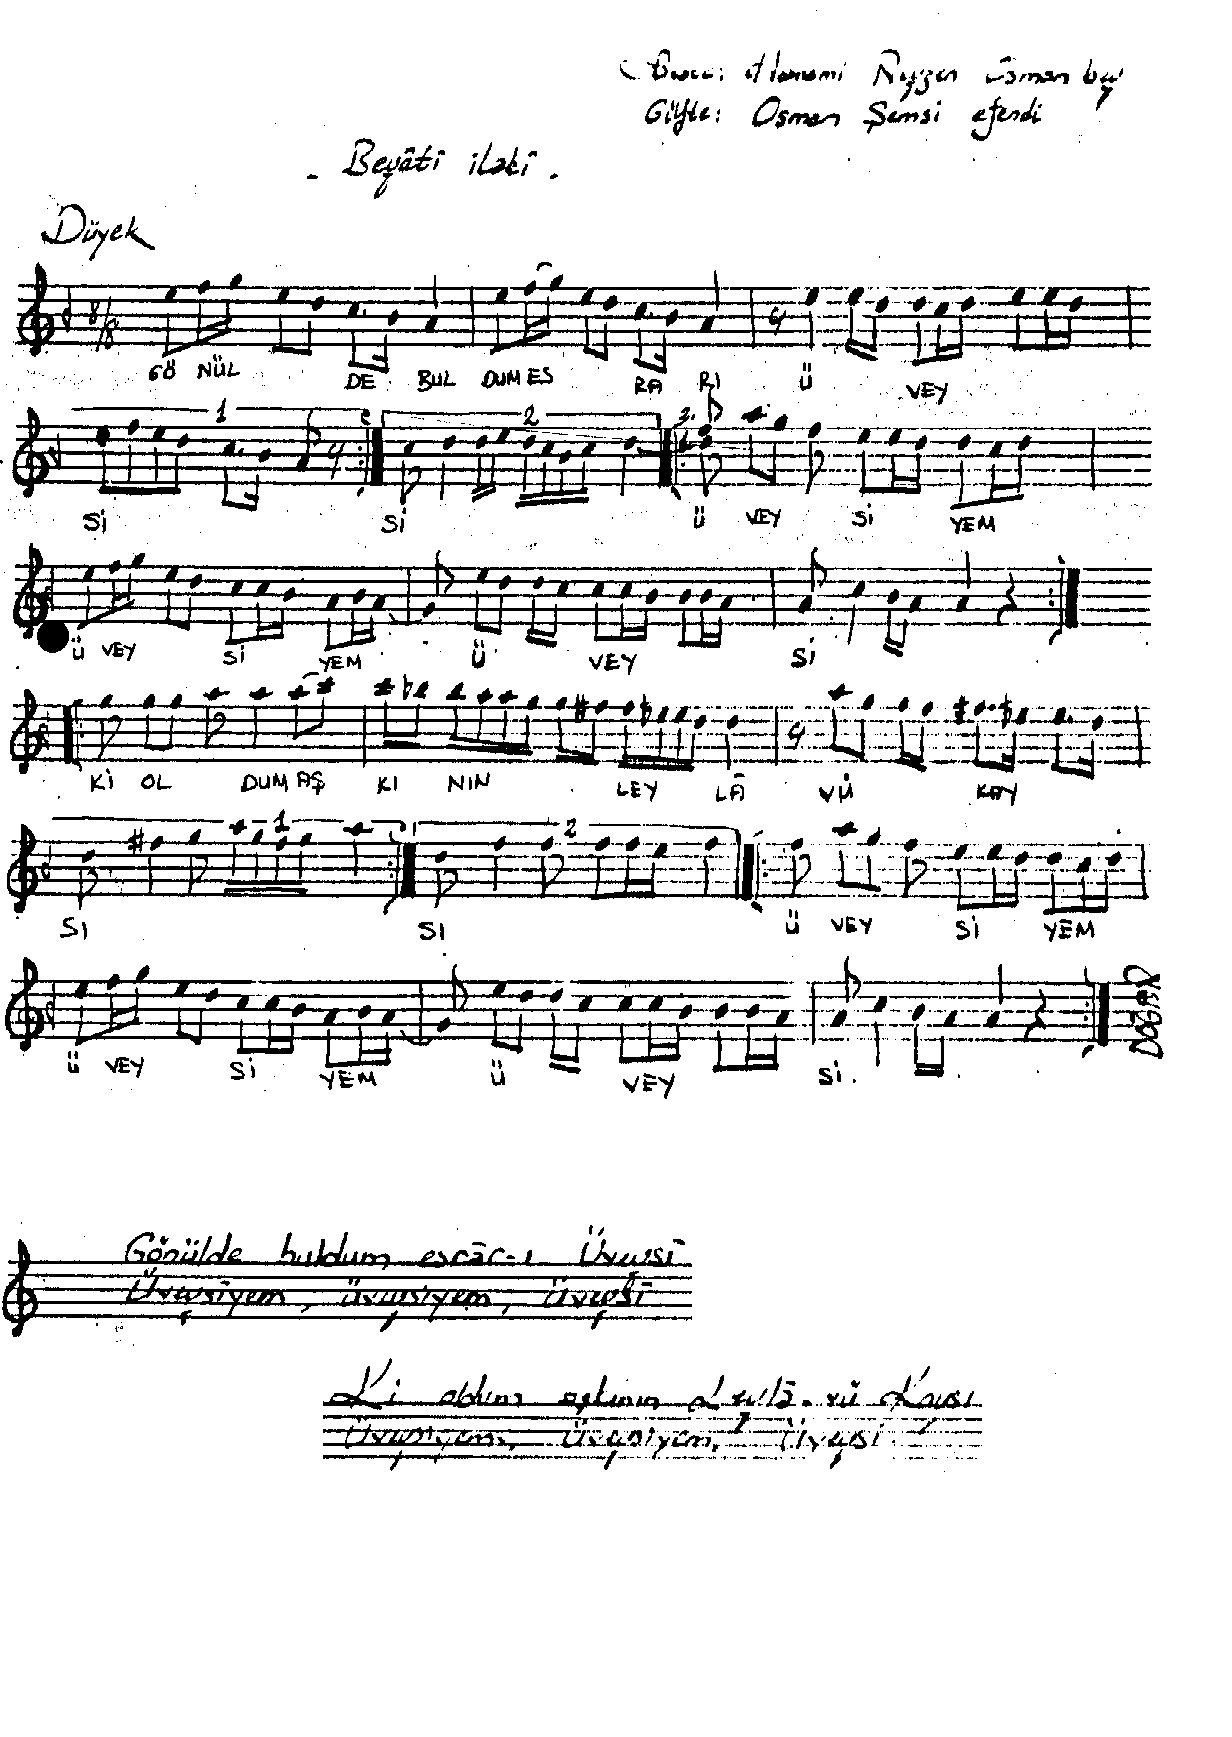 Beste: Hanami Neyzen Osman bey
Güfte: Osman Şemsi efendi
- Beyâtî ilâhî -
Düyek
8/8
GÖ NÜL DE BUL DUM ES RA RI Ü VEY
1 2 2.
Sİ Sİ Ü VEY Sİ YEM
Ü VEY Sİ YEM Ü VEY Sİ
Kİ OL DUM AŞ KI NIN LEY LÂ VÜ KAY
1 2
SI SI Ü VEY Sİ YEM
Ü VEY Sİ YEM Ü VEY Sİ
DOĞAN
Gönülde buldum esrâr-ı Üveysî
Üveysîyem, üveysîyem, üveysî
Ki oldum aşkının Leylâ-vü Kaysı
Üveysîyem, Üveysîyem, Üveysî